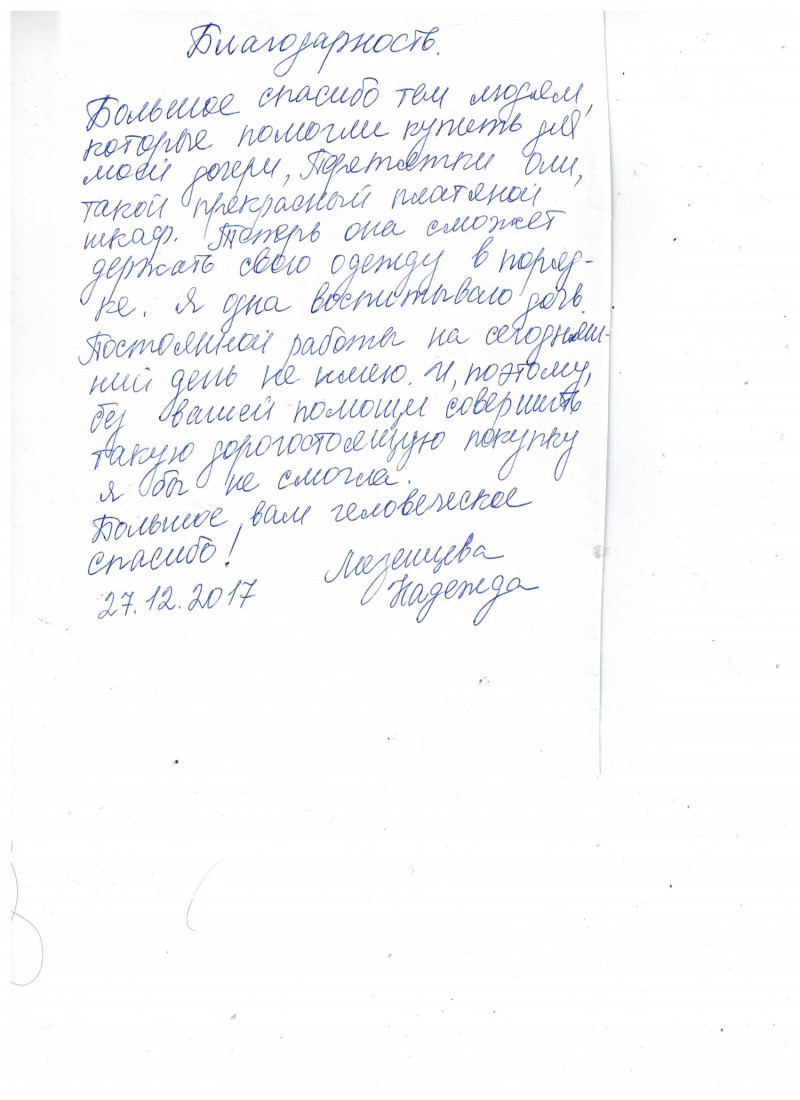 Благодарность.
Большое спасибо тем людям,
которые помогли купить для
моей дочери, Оли,
такой прекрасный платяной
шкаф. Теперь она сможет
держать свою одежду в поряд-
ке. Я одна воспитываю дочь.
Постоянной работы на сегодняш-
ний день не имею. И, поэтому,
без вашей помощи совершить
такую дорогостоящую покупку
я бы не смогла.
Большое вам человеческое
спасибо!
Надежда
27.12.2017